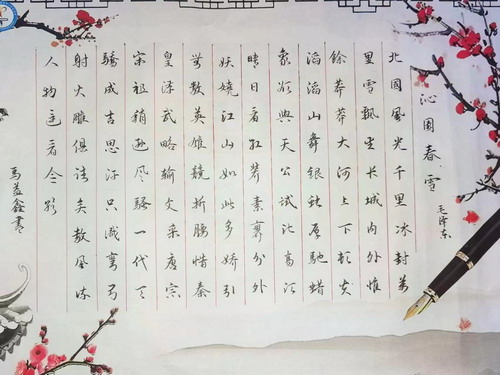 沁園春·雪
毛泽东
北國風光千里冰封萬
里雪飄望长城内外惟
餘莽莽大河上下顿失
滔滔山舞银蛇原驰蜡
象欲與天公试比高须
晴日看红装素裹分外
妖娆江山如此多娇引
無数英雄競折腰惜秦
皇漢武略输文采唐宗
宋祖稍逊风骚一代天
骄成吉思汗只识弯弓
射大雕俱往矣数风流
人物还看今朝
马益鑫書